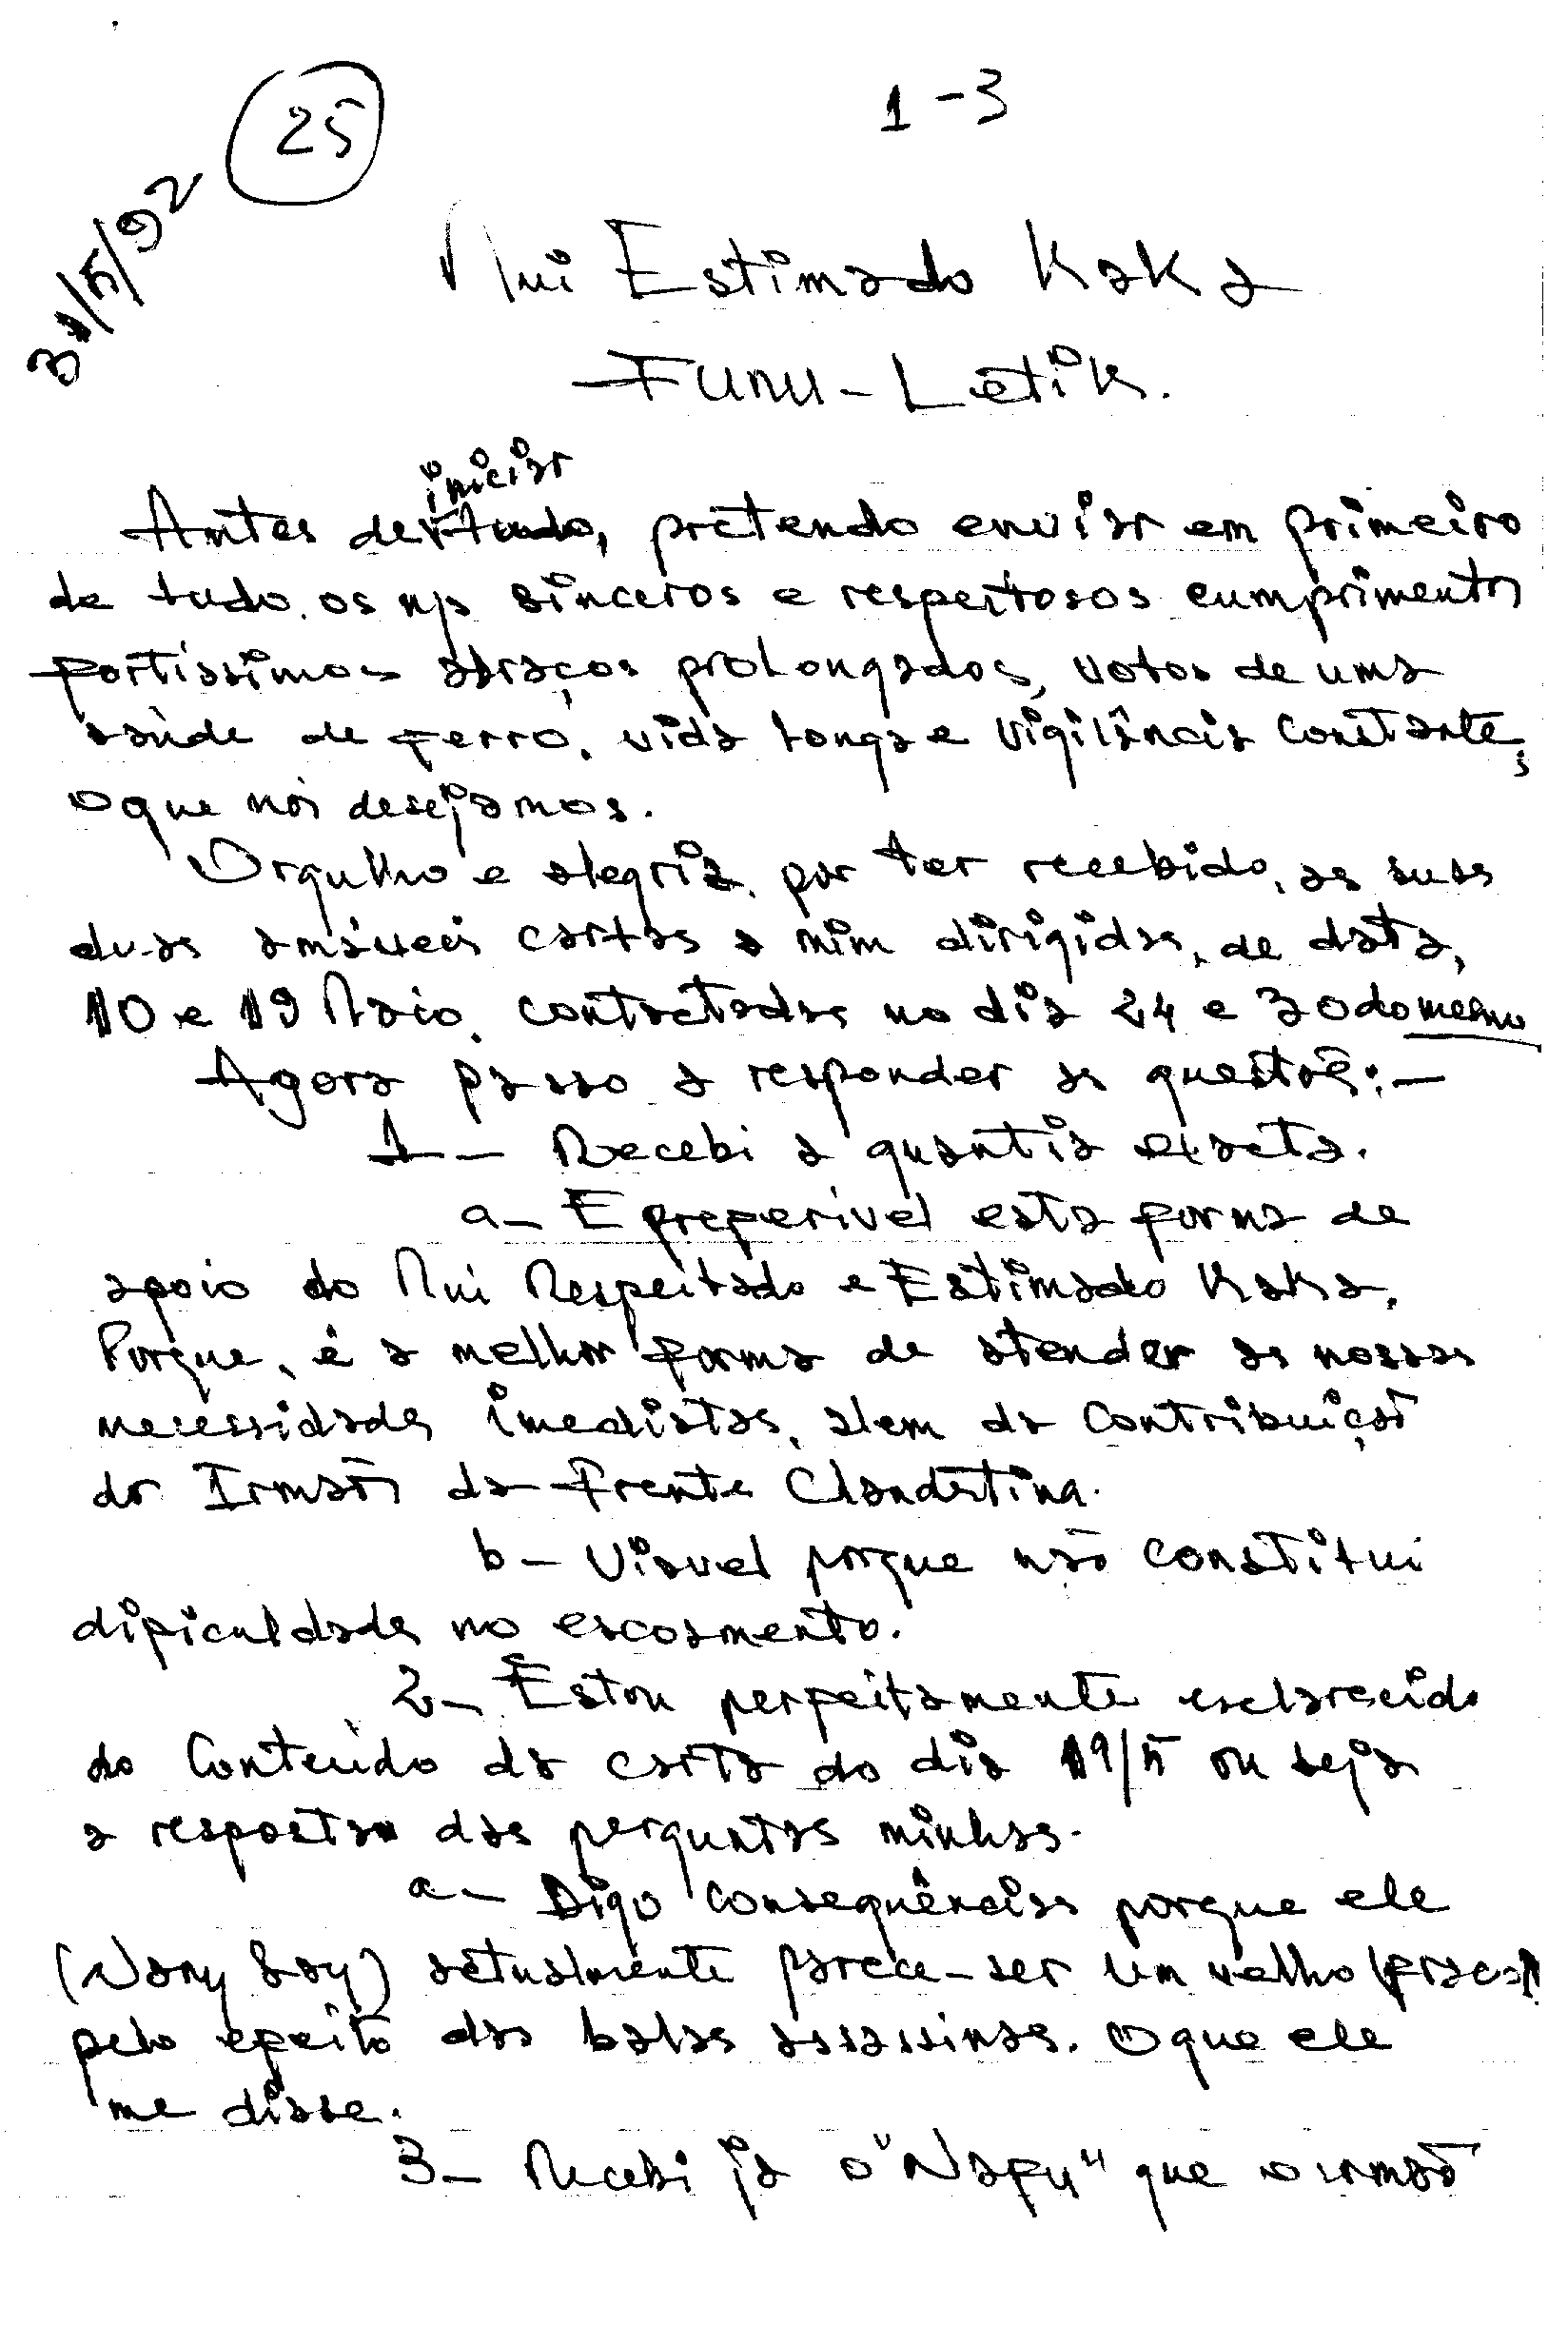 25
1-3
31/5/92
Mui Estimado Kaka
Funu-Letik.
iniciar
Antes de tudo, pretendo enviar em primeiro
de tudo, os n/s sinceros e respeitosos cumprimentos
fortissimos abraços prolongados, votos de uma
saúde de ferro, vida longa e vigilância constante,
o que nós desejamos.
Orgulho e alegria, por ter recebido, as suas
duas amáveis cartas a mim dirigidas, de data,
10 e 19 Maio, contactadas no dia 24 e 30 do mesmo
Agora passo a responder as questões:-
1- Recebi a quantia exacta.
a- E preferível esta forma de
apoio do Mui Respeitado e Estimado Kaka,
Porque, é a melhor forma de atender as nossas
necessidades imediatas, alem da Contribuição
do Irmão da Frente Clandestina.
b- Viavel porque não constitui
dificuldades no escoamento.
2- Estou perfeitamente esclarecido
do Conteúdo da carta do dia 19/5 ou seja
a resposta das perguntas minhas.
a- Digo consequências porque ele
(Nany Boy) actualmente parece-ser um velho (fraco),
pelo efeito das balas assassinas. O que ele
me disse.
3- Recebi ja o "Nafu" que o irmão